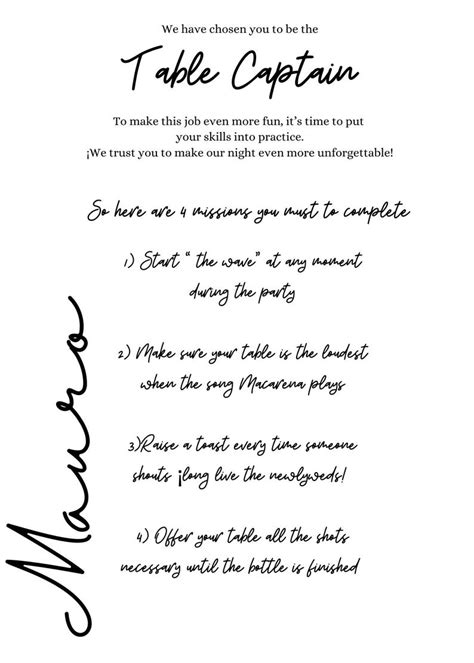 We have chosen you to be the
Table Captain
To make this job even more fun, it's time to put
your skills into practice.
¡We trust you to make our night even more unforgettable!
So here are 4 missions you must to complete
1) Start “ the wave” at any moment
during the party
2) Make sure your table is the loudest
when the song Macarena plays
3)Raise a toast every time someone
shouts ¡long live the newlyweds!
4) Offer your table all the shots
necessary until the bottle is finished
Mauro